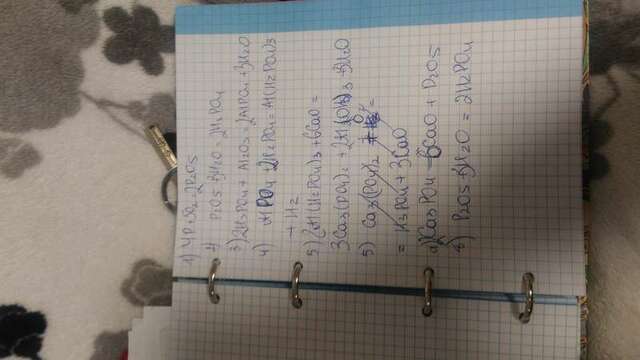 1) 4P+5O2=2P2O5
2) P2O5+3H2O=2H3PO4
3) 2H3PO4+Al2O3=2AlPO4+3H2O
4) AlPO4+2H3PO4=Al(H2PO4)3
+H2
5) 2Al(H2PO4)3+6CaO=
3Ca3(PO4)2+2Al(OH)3+3H2O
5) Ca3(PO4)2 =
=H3PO4+3CaO
a) Ca3PO4 6CaO+P2O5
б) P2O5+3H2O=2H3PO4